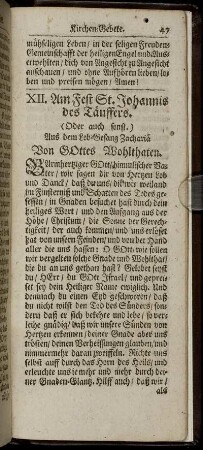 Kirchen-Gebete. 47
mühseligen Leben/ in der seligen Freuden
Gemeinschafft der heiligen Engel und Auss
erwehlten/ dich von Angesicht zu Angesicht
anschauen / und ohne Aufhören lieben/ los
ben und preisen mögen/ Amen!
XII. Am Fest St. Johannis
des Täuffers.
(Oder auch sonst.)
Aus dem Lob-Gesang Zachariä
Von GOttes Wohlthaten.
BArmhertziger GOtt/himmlischer Va
ter/ wir sagen dir von Hertzen Lob
und Danck/ daß du uns/ die wir weiland
im Finsterniß und Schatten des Todes ges
sessen/ in Gnaden besuchet hast durch dein
heiliges Wort / und den Aufgang aus der
Höhe/ Christum/ die Sonne der Gerech-
tigkeit/ der auch kommen/ und uns erlöset
hat von unsern Feinden/ und von der Hand
aller die uns hassen: O GOtt wie sollen
wir vergelten solche Gnade und Wolthat/
die du an uns gethan hast? Gelobet seyst
du/ HErr/ du GOtt Israel/ und geprei-
set sey dein Heiliger Name ewiglich. Und
demnach du einen Eyd geschworen/ daß
du nicht willt den Tod des Sünders/ son-
dern daß er sich bekehre und lebe/ so vers
leihe gnädig/ daß wir unsere Sünden von
Hertzen erkennen/ deiner Gnade aber uns
trösten/ deinen Verheissungen glauben/und
nimmermehr daran zweiffeln. Richte uns
selbst auff durch das Horn des Heils/ und
erleuchte uns ie mehr und mehr durch dei-
ner Gnaden-Glantz. Hilff auch/ daß wir/
als